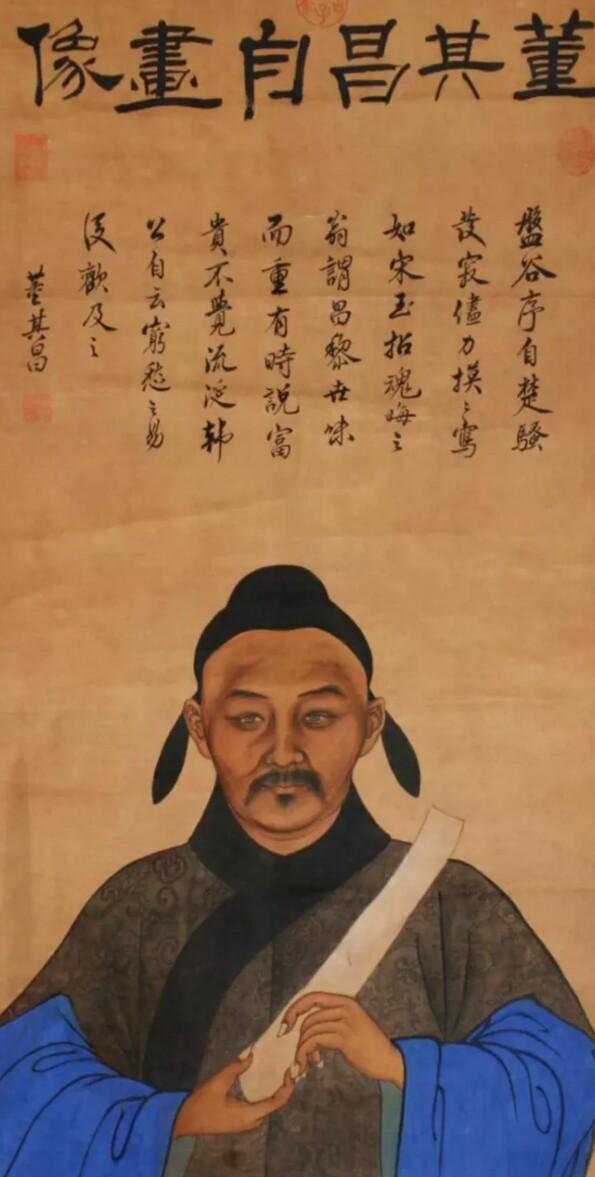 董其昌自畫像
盤谷序自楚騷
發寂儘力摸〻寫
如宋玉招魂晦之
翁謂昌黎世味
而重有時說富
貴不覺流涎韩
公自云窮愁之易
歡及之
董其昌